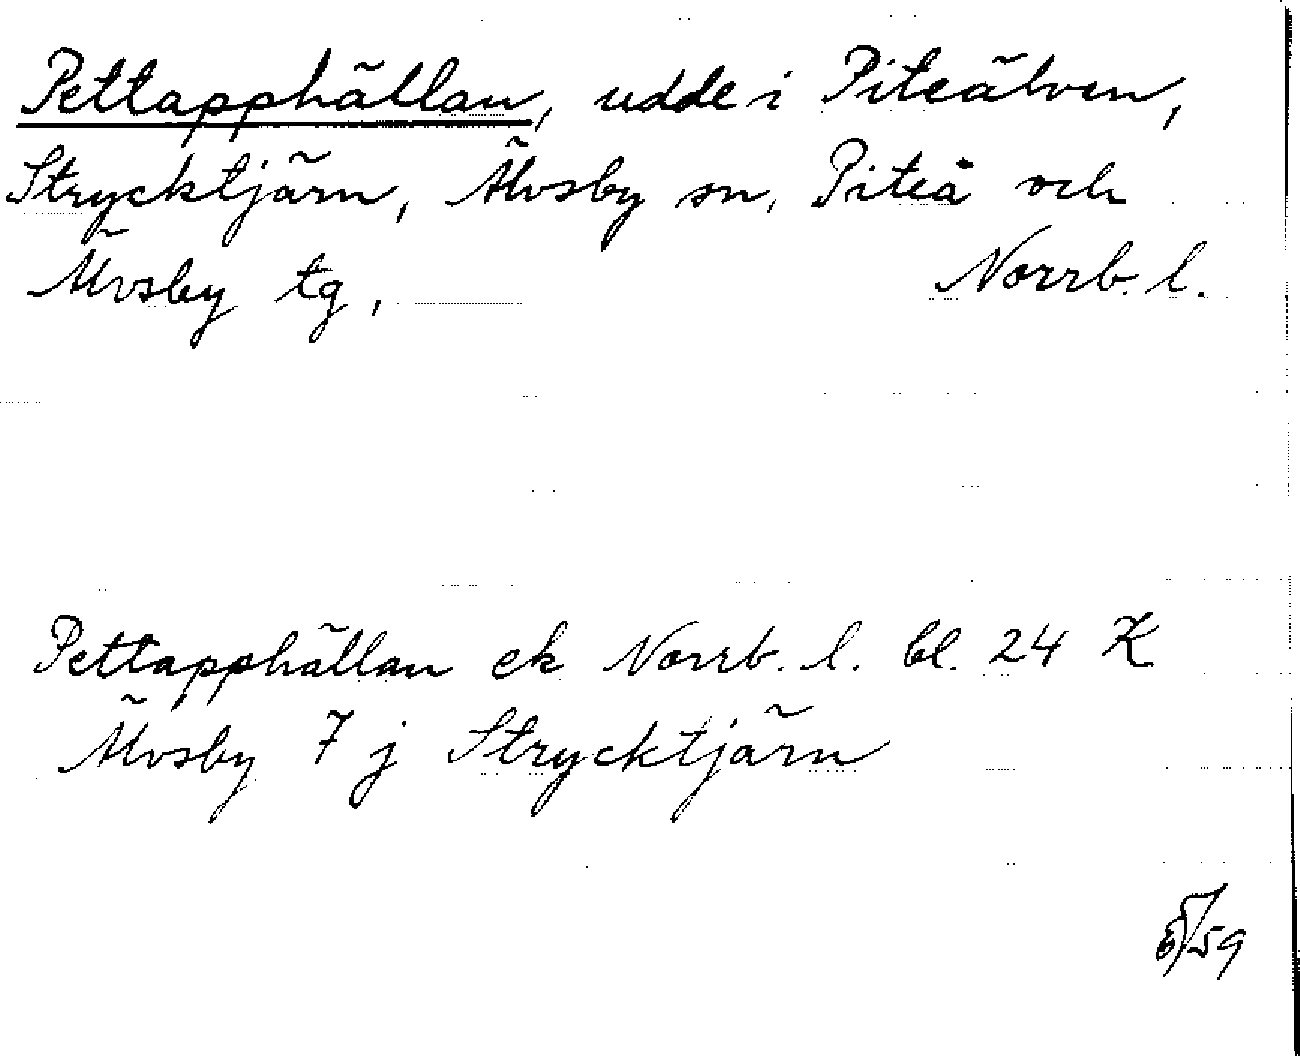 Pettapphällan, udde i Piteälven,
Strycktjärn, Älvsby sn, Piteå och
Älvsby tg, Norrb. l.
Pettapphällan ek Norrb. l. bl. 24 K
Älvsby 7 j Strycktjärn